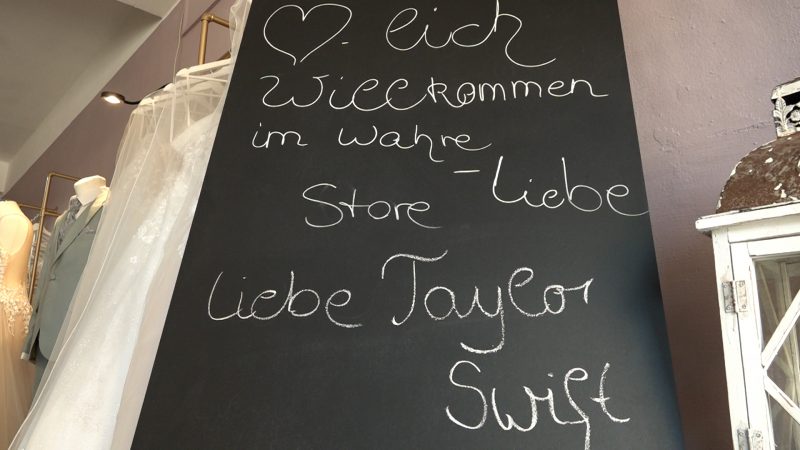 ♡-lich
Willkommen
im Wahre
-Liebe
Store
Liebe Taylor
Swift